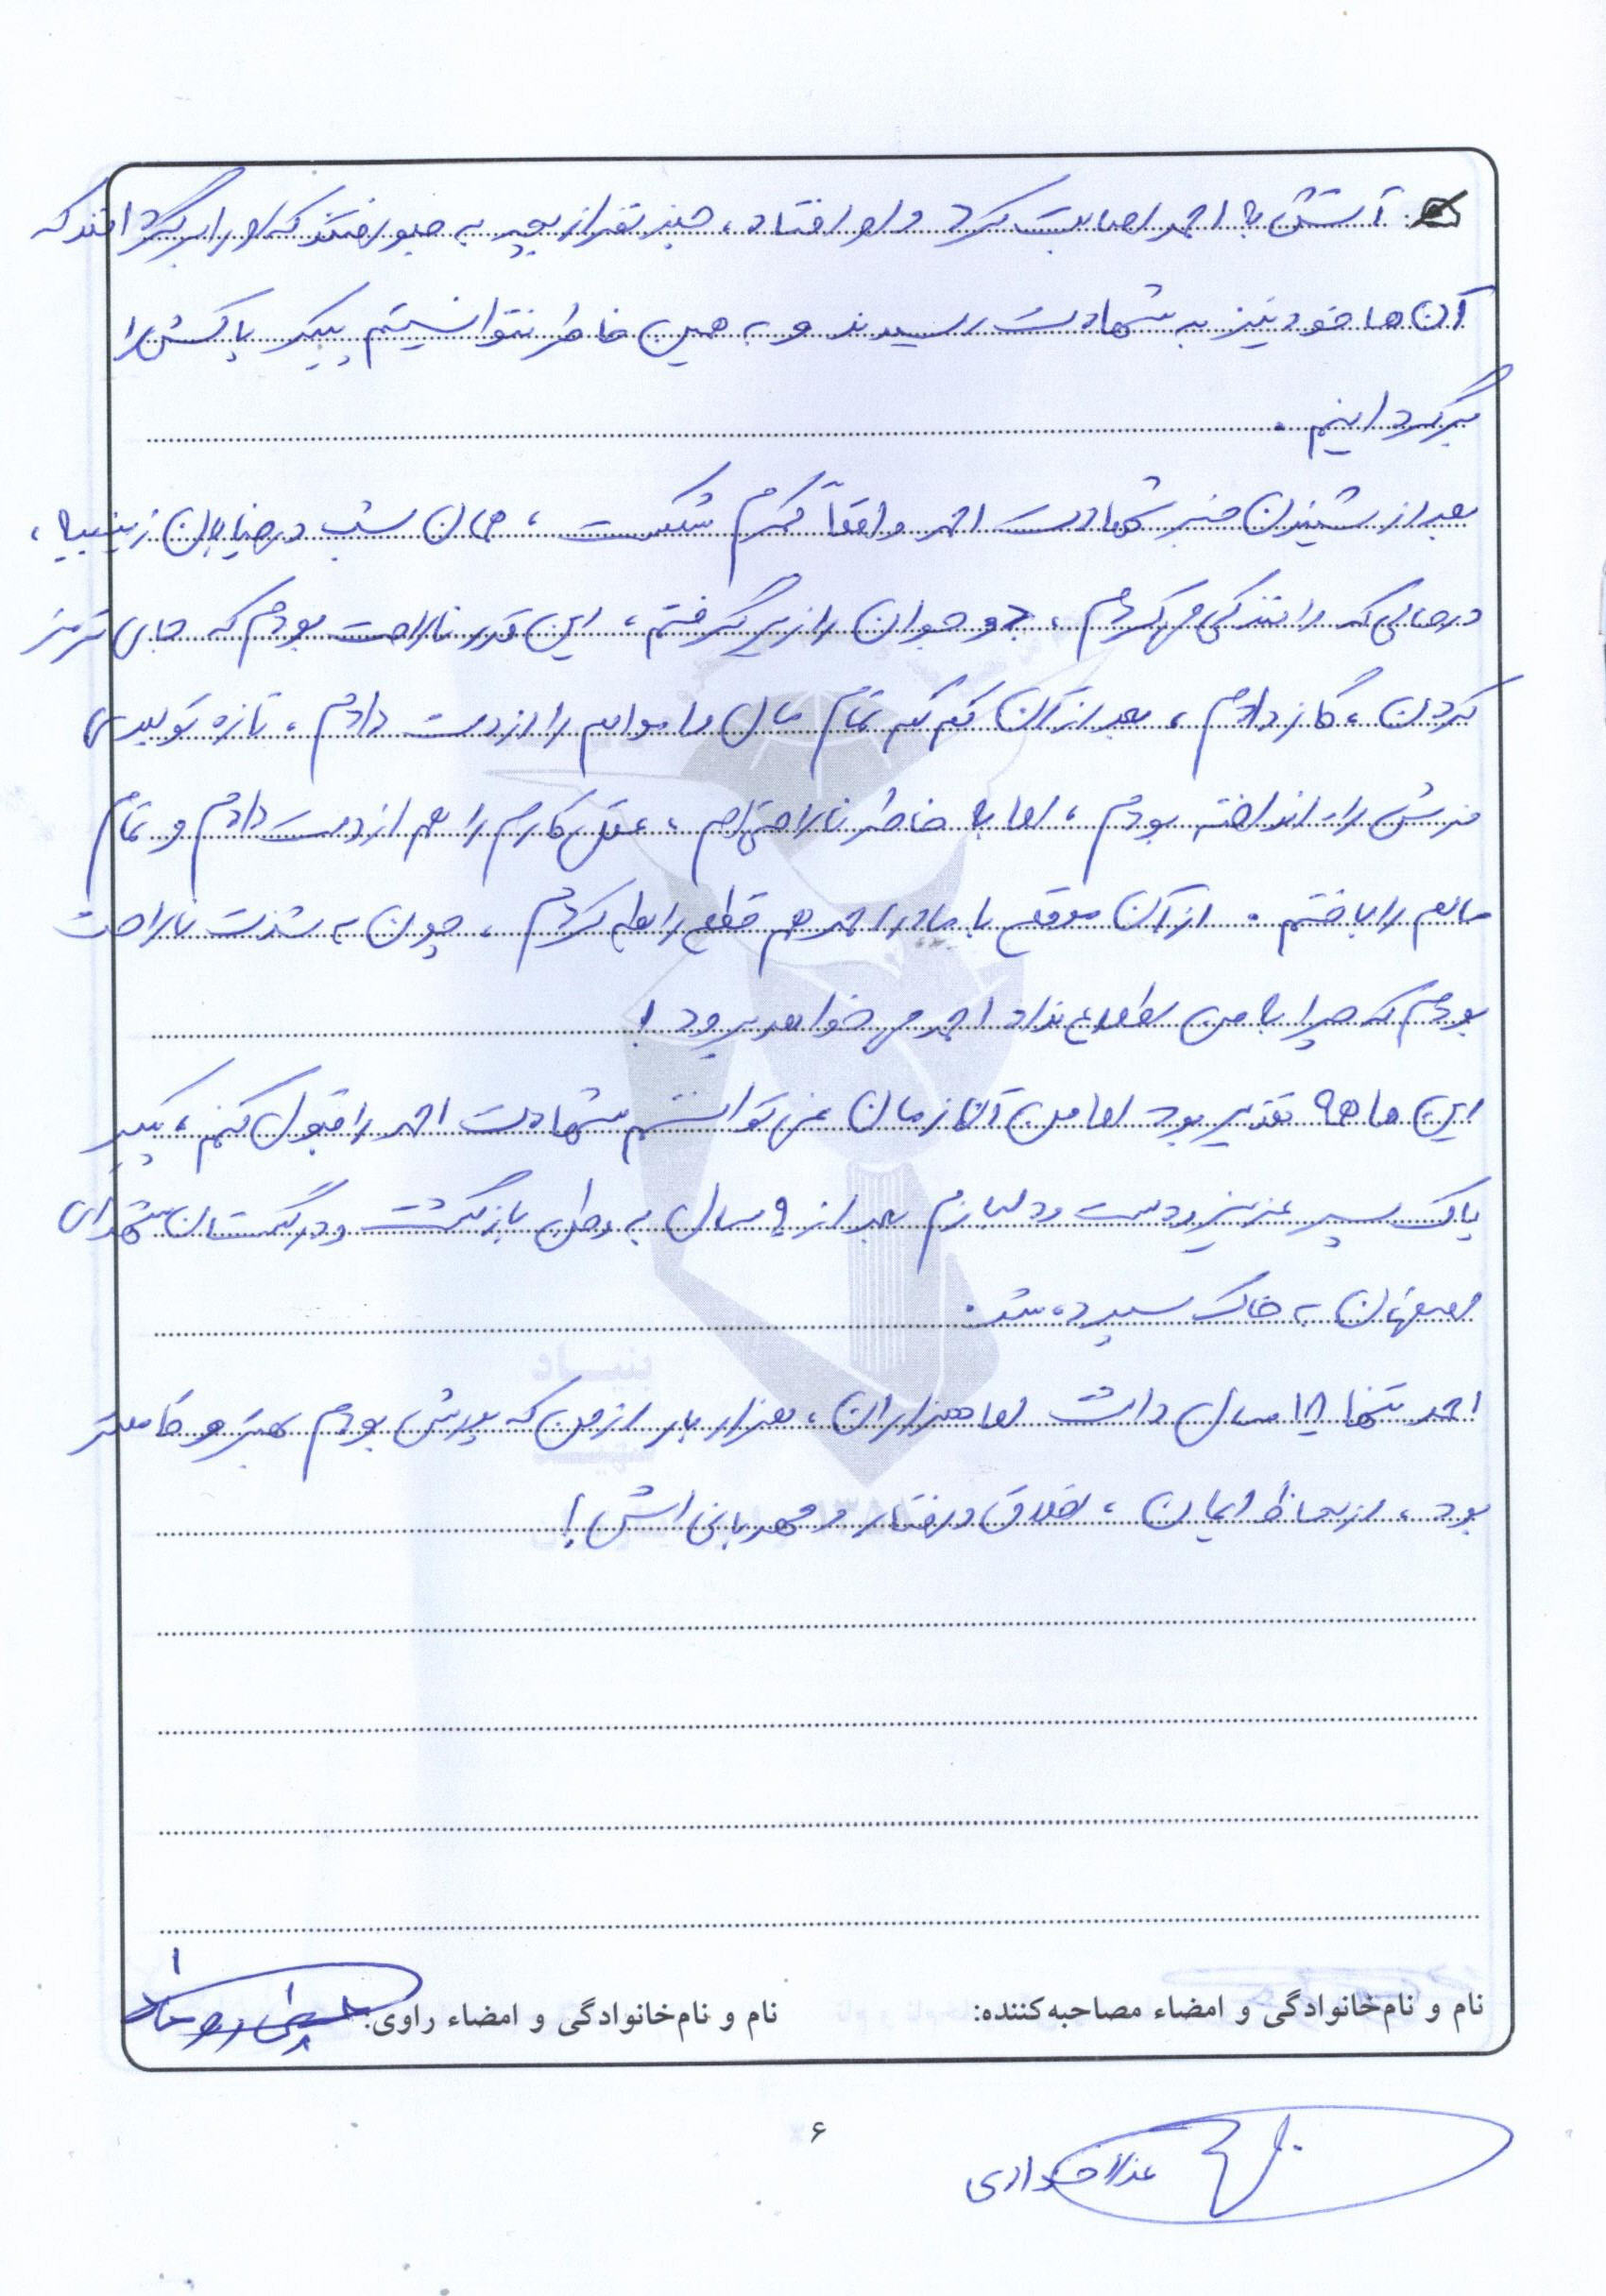 آتش به احمد اصابت کرد و او افتاد، چند نفر از بچه ها به جلو رفتند که او را برگردانند که
آن ها خود نیز به شهادت رسیدند و به همین خاطر نتوانستیم پیکر پاکش را
برگردانیم.
بعد از شنیدن خبر شهادت احمد واقعاً کمرم شکست، همان شب در خیابان زینبیه،
در حالی که رانندگی می کردم، دو جوان را زیر گرفتم، این قدر ناراحت بودم که جای ترمز
کردن، گاز دادم، بعد از آن کم کم تمام مال و اموالم را از دست دادم، تازه تولیدی
فرش راه انداخته بودم، اما به خاطر ناراحتی ام، عقل کارم را هم از دست دادم و تمام
مالم را باختم. از آن موقع با مادر احمد هم قطع رابطه کردم، چون به شدت ناراحت
بودم که چرا به من اطلاع نداد احمد می خواهد برود!
این ها همه تقدیر بود اما من آن زمان نمی توانستم شهادت احمد را قبول کنم، پیکر
پاک پسر عزیز و دلبندم بعد از ۹ سال به وطن بازگشت و در گلستان شهدای
اصفهان به خاک سپرده شد.
احمد تنها ۱۸ سال داشت اما هزاران، هزار بار از من که پدرش بودم بهتر و کاملتر
بود، از لحاظ ایمان، اخلاق و رفتار و مهربانی اش!
نام و نام‌خانوادگی و امضاء مصاحبه‌کننده:
نام و نام‌خانوادگی و امضاء راوی:
۶